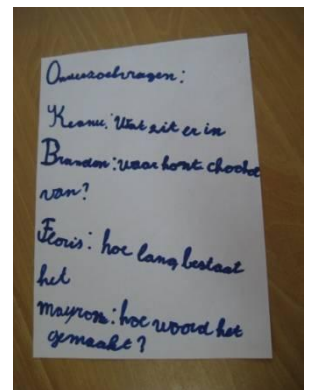 Onderzoekvragen:
Keanu: Wat zit er in
Brandon: waar komt chocho
van?
Floris: hoe lang bestaat
het
mayron: hoe woord het
gemaakt?